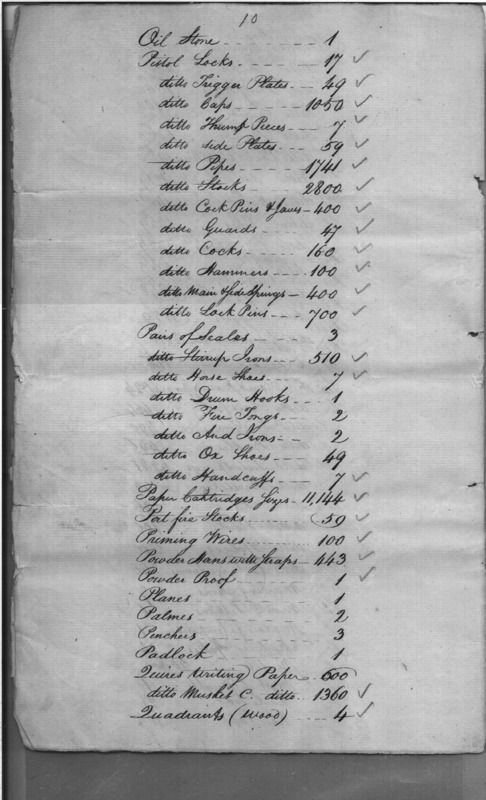 10
Oil Stone 1
Pistol Locks 17 ✓
ditto Trigger Plates 49 ✓
ditto Caps 1050 ✓
ditto Thump Pieces 7 ✓
ditto side Plates 59 ✓
ditto Pipes 1741 ✓
ditto Stocks 2800 ✓
ditto Cock Pins & Jaws 400 ✓
ditto Guards 47 ✓
ditto Cocks 160 ✓
ditto Hammers 100 ✓
ditto Main & Side Springs 400 ✓
ditto Lock Pins 700 ✓
Pairs of Scales 3
ditto Stirrup Irons 510 ✓
ditto Horse Shoes 7 ✓
ditto Drum Hooks 1
ditto Fire Tongs 2
ditto And Irons 2
ditto Ox Shoes 49
ditto Handcuffs 7 ✓
Paper Cartridges Sizes 11,144 ✓
Port fire Stocks 59 ✓
Priming Wires 100 ✓
Powder with Straps 443 ✓
Powder Proof 1 ✓
Planes 1
Palmes 2
Pinchers 3
Padlock 1
Quires Writing Paper 600
ditto Musket C. ditto 1360 ✓
Quadrants (wood) 4 ✓